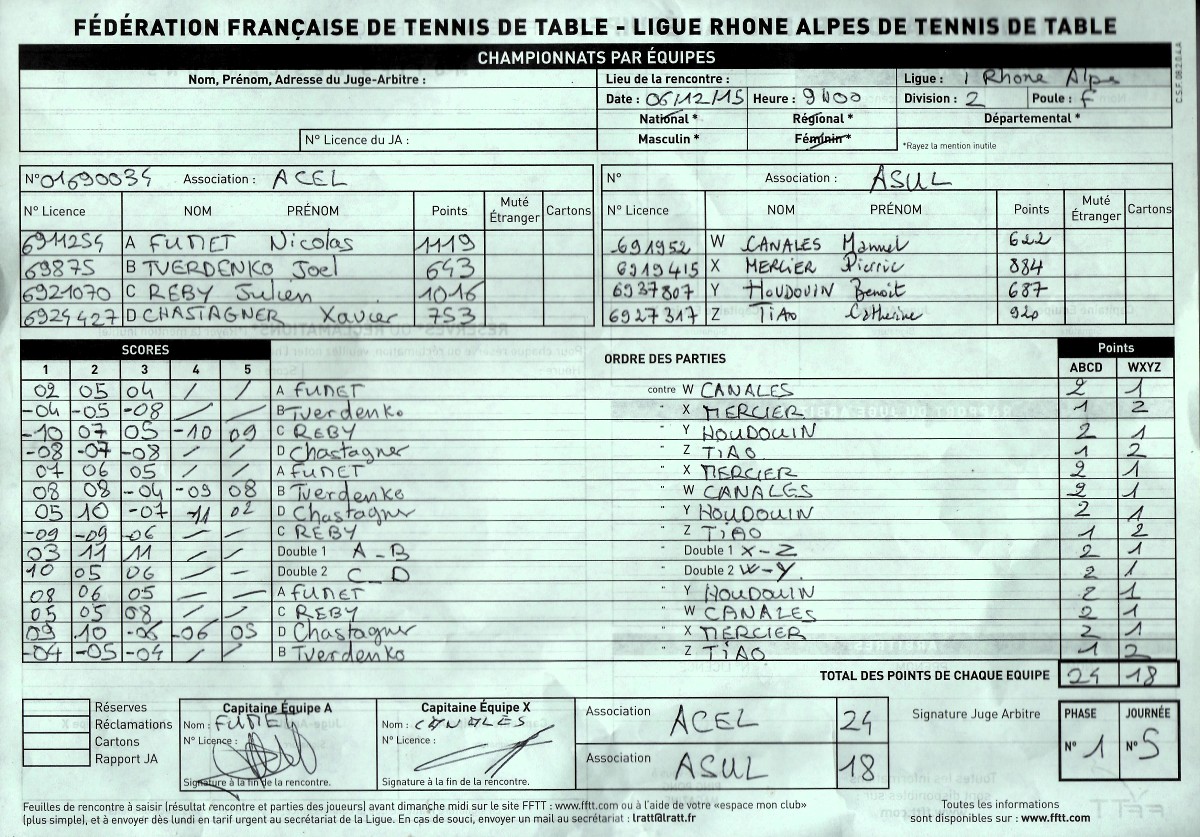 FÉDÉRATION FRANÇAISE DE TENNIS DE TABLE - LIGUE RHONE ALPES DE TENNIS DE TABLE
CHAMPIONNATS PAR ÉQUIPES
C.S.F. 08.2.0.4.A
Nom, Prénom, Adresse du Juge-Arbitre :
Lieu de la rencontre :
Ligue : Rhone Alpe
Date : 06/12/15 Heure : 9H00
Division : 2 Poule : F
National * Régional * Départemental *
Masculin * Féminin*
*Rayez la mention inutile
N° Licence du JA :
N°01690034 Association : ACEL
N° Association : ASUL
N° Licence NOM PRÉNOM Points Muté Étranger Cartons
N° Licence NOM PRÉNOM Points Muté Étranger Cartons
6911254 A FUMET Nicolas 1119
691952 W CANALES Manuel 622
69875 B TVERDENKO Joel 643
6919415 X MERCIER Pierric 884
6921070 C REBY Julien 1016
6937807 Y HOUDOUIN Benoit 687
6924427 D CHASTAGNER Xavier 753
6927317 Z TIAO Catherine 920
SCORES ORDRE DES PARTIES Points
1 2 3 4 5 ABCD WXYZ
02 05 04 / / A FUMET contre W CANALES 2 1
-04 -05 -08 / / B Tverdenko " X MERCIER 1 2
-10 07 05 -10 09 C REBY " Y HOUDOUIN 2 1
-08 -07 -08 / / D Chastagner " Z TIAO 1 2
07 06 05 / / A FUMET " X MERCIER 2 1
08 08 -04 -09 08 B Tverdenko " W CANALES 2 1
05 10 -07 -11 02 D Chastagner " Y HOUDOUIN 2 1
-09 -09 -06 / / C REBY " Z TIAO 1 2
03 11 11 / / Double 1 A - B " Double 1 X - Z 2 1
10 05 06 / / Double 2 C - D " Double 2 W - Y 2 1
08 06 05 / / A FUMET " Y HOUDOUIN 2 1
05 05 08 / / C REBY " W CANALES 2 1
09 10 -06 -06 05 D Chastagner " X MERCIER 2 1
-04 -05 -04 / / B Tverdenko " Z TIAO 1 2
TOTAL DES POINTS DE CHAQUE EQUIPE 24 18
Réserves
Réclamations
Cartons
Rapport JA
Capitaine Équipe A
Nom : FUMET
N° Licence :
Signature à la fin de la rencontre.
Capitaine Équipe X
Nom : CANALES
N° Licence :
Signature à la fin de la rencontre.
Association ACEL 24
Association ASUL 18
Signature Juge Arbitre
PHASE JOURNÉE
N° 1 N° 5
Feuilles de rencontre à saisir (résultat rencontre et parties des joueurs) avant dimanche midi sur le site FFTT : www.fftt.com ou à l'aide de votre «espace mon club»
(plus simple), et à envoyer dès lundi en tarif urgent au secrétariat de la Ligue. En cas de souci, envoyer un mail au secrétariat : lratt@lratt.fr
Toutes les informations
sont disponibles sur : www.fftt.com